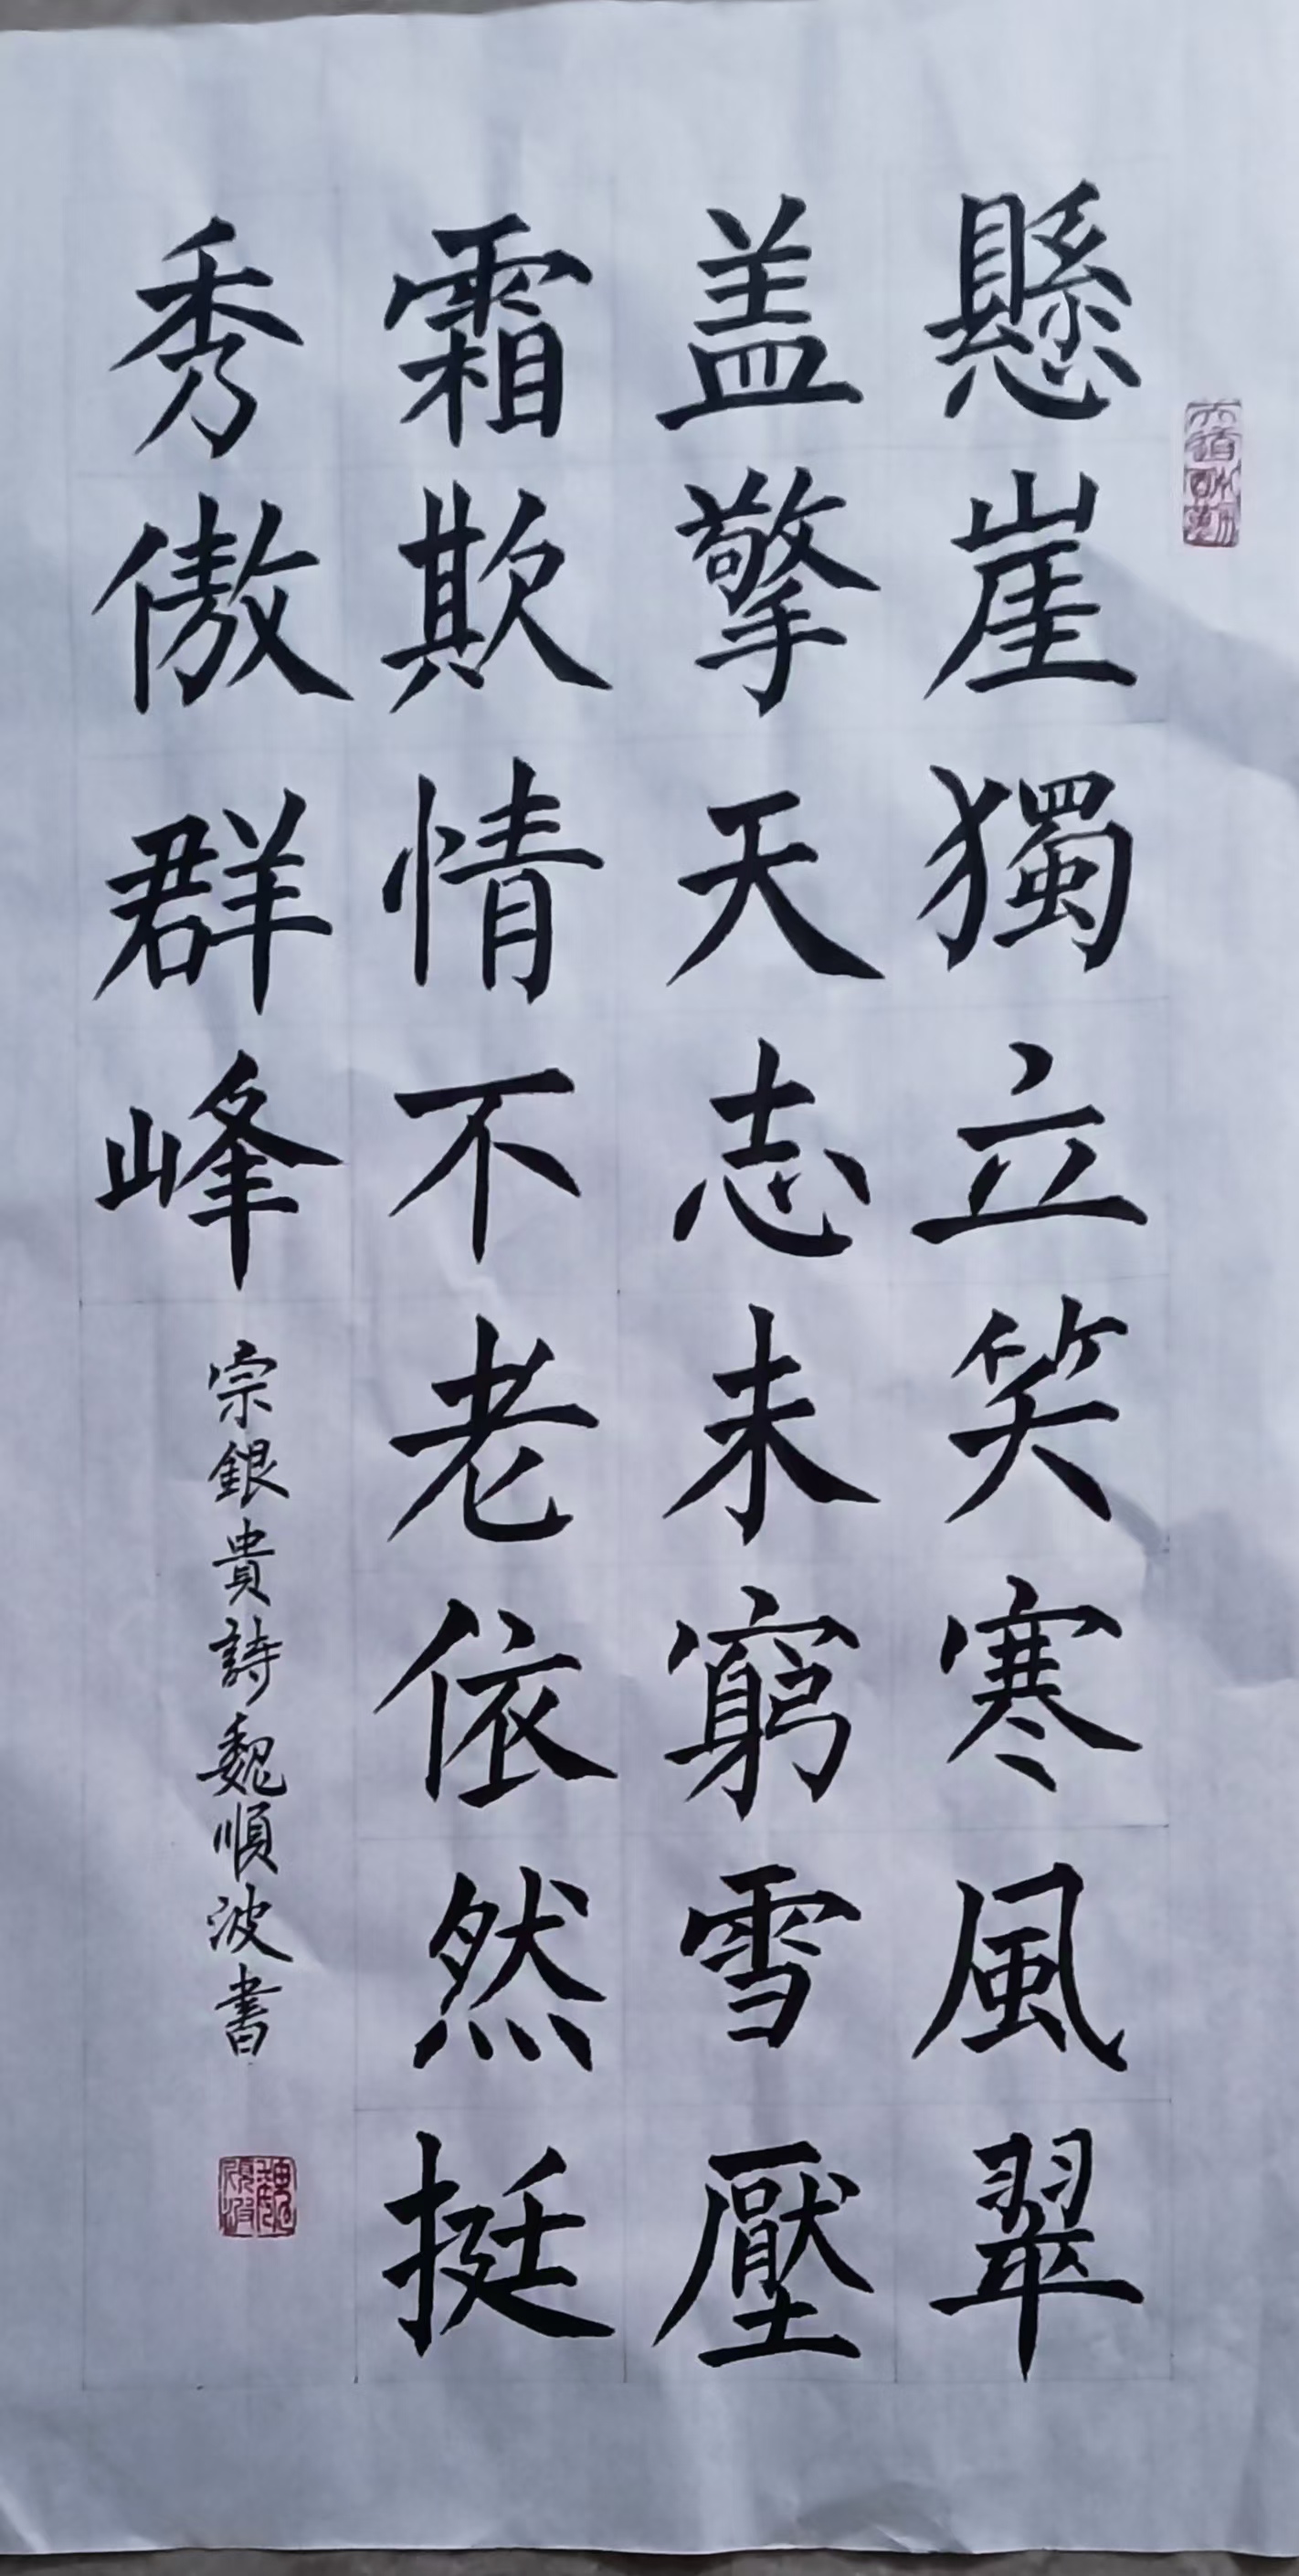 懸崖獨立笑寒風翠
盖擎天志未窮雪壓
霜欺情不老依然挺
秀傲群峰
宗銀貴詩魏順波書
魏順波